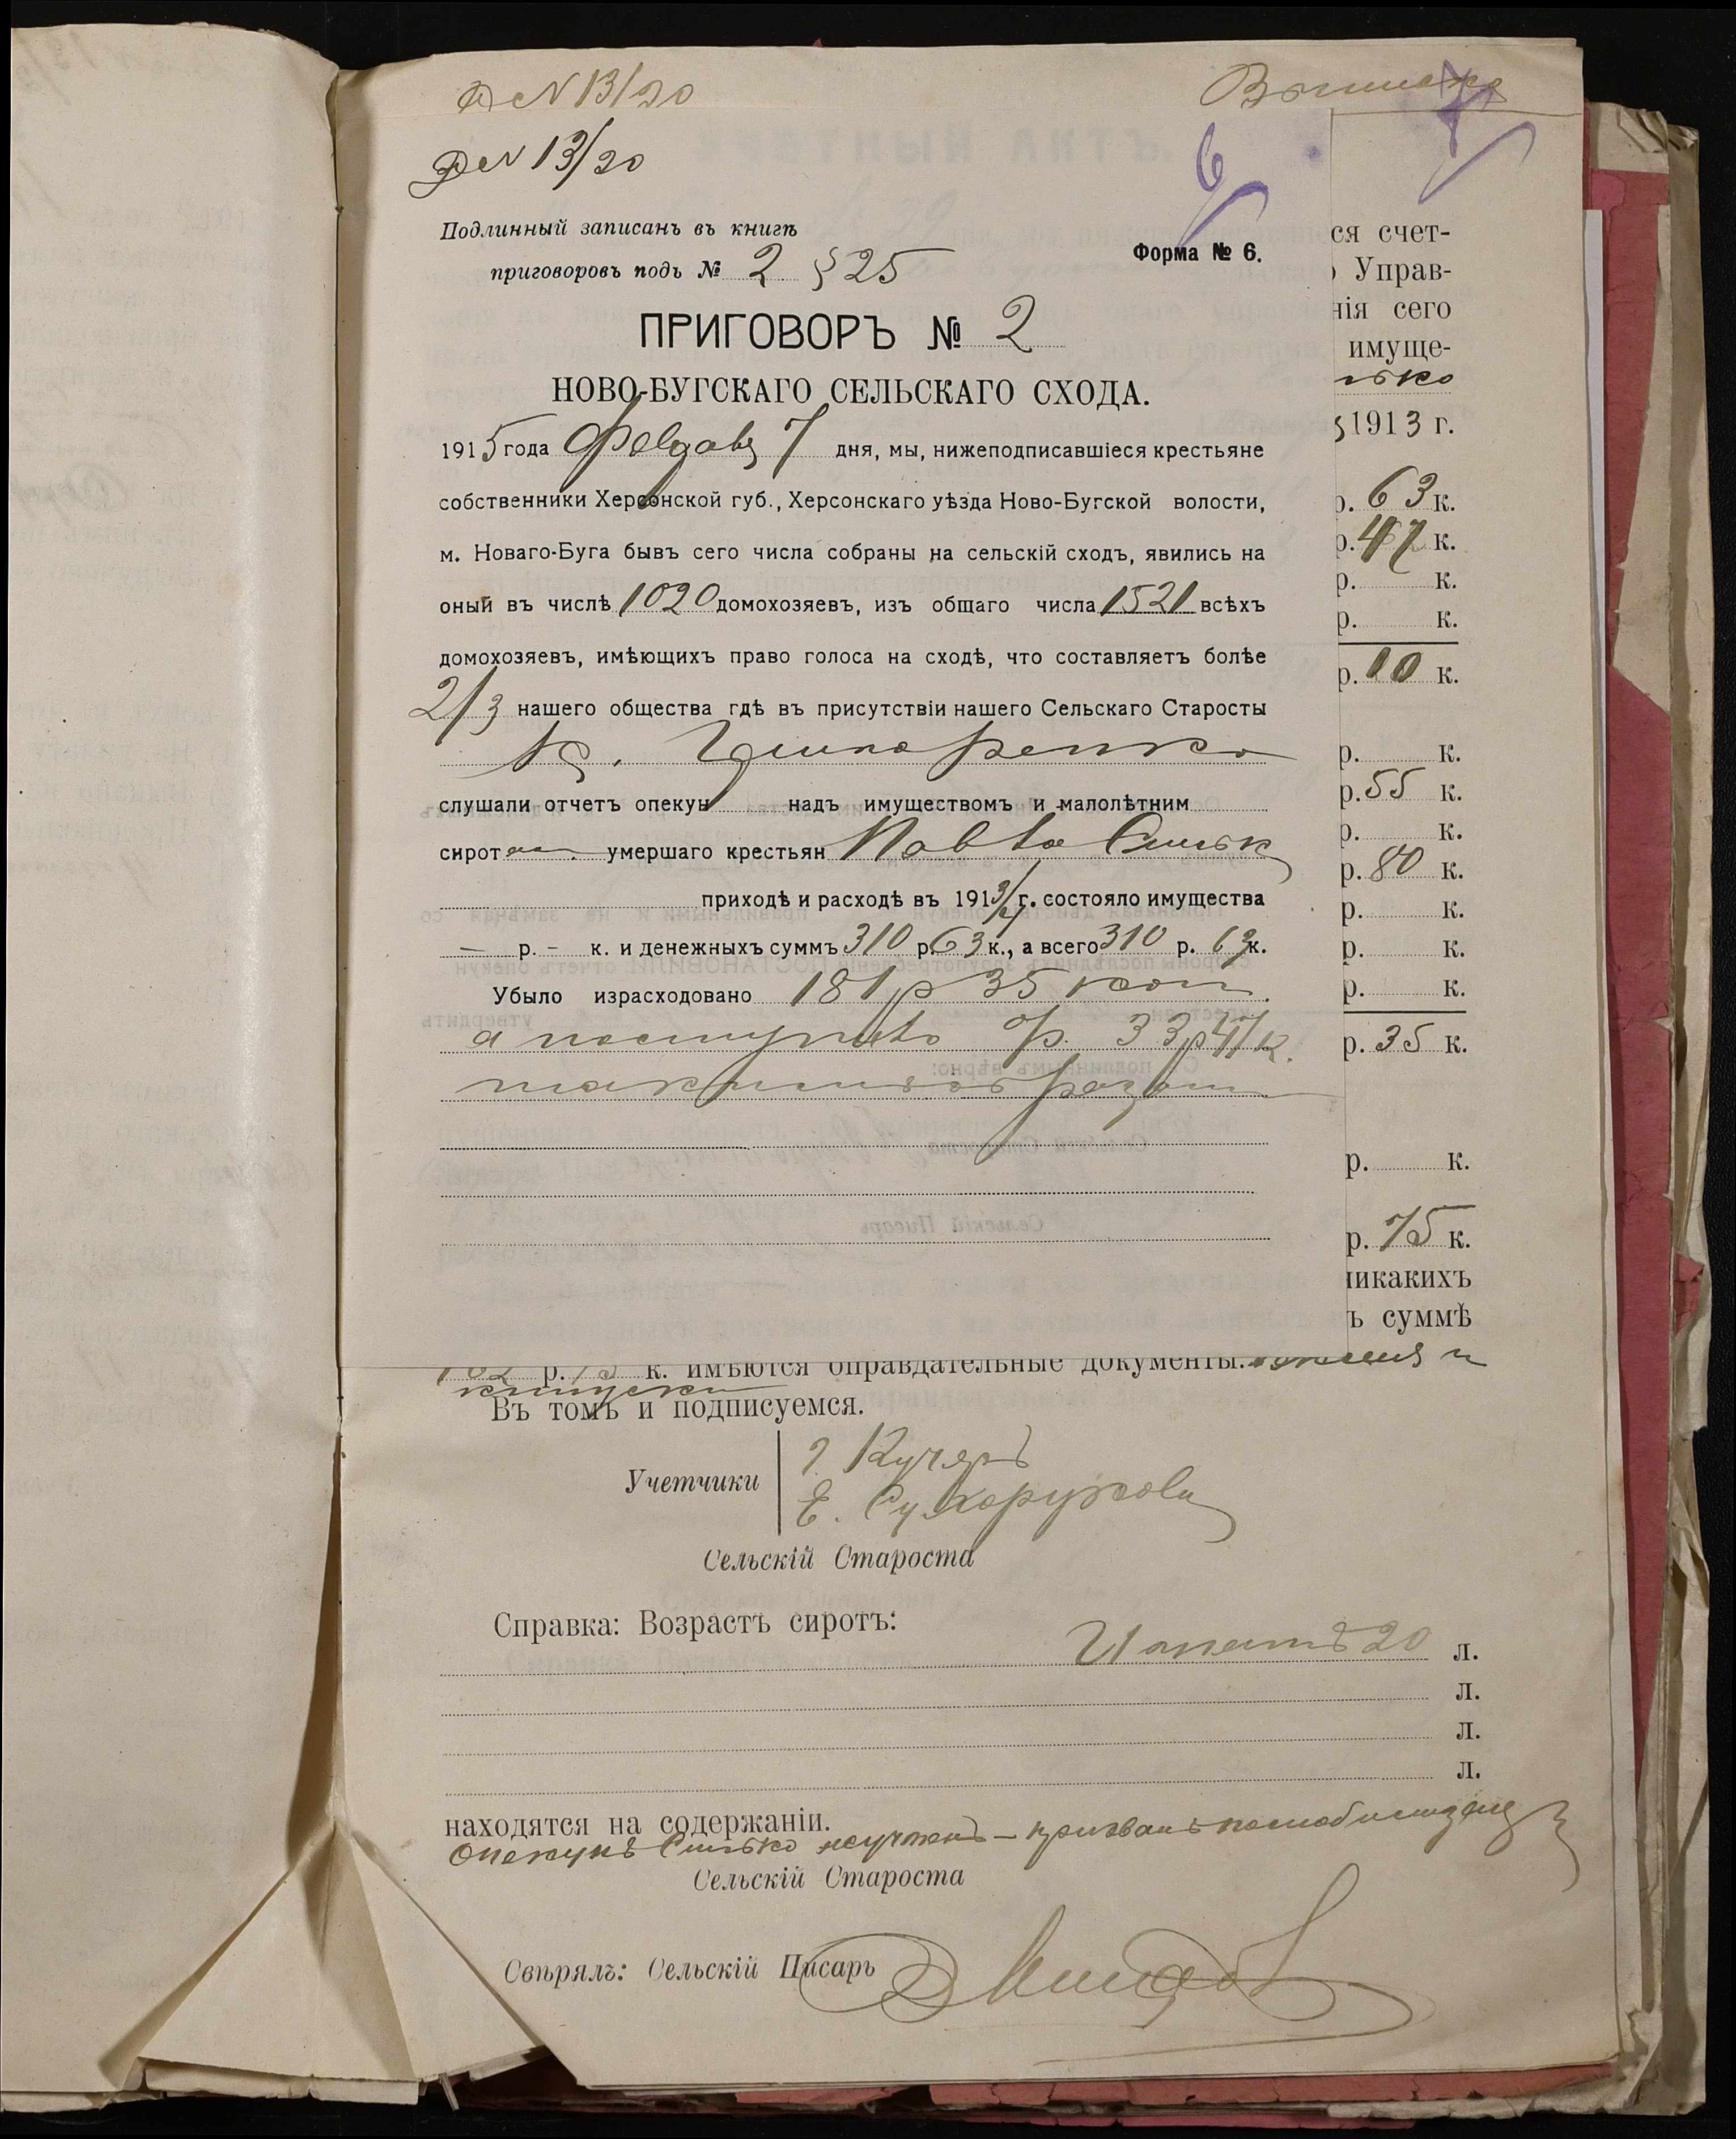 Д № 13/20
Д № 13/20
6
Подлинный записанъ въ книгѣ
приговоровъ подъ № 2 § 25
Форма № 6.
ПРИГОВОРЪ № 2
НОВО-БУГСКАГО СЕЛЬСКАГО СХОДА.
1915 года Февраля 7 дня, мы, нижеподписавшіеся крестьяне
собственники Херсонской губ., Херсонскаго уѣзда Ново-Бугской волости,
м. Новаго-Буга бывъ сего числа собраны на сельскій сходъ, явились на
оный въ числѣ 1020 домохозяевъ, изъ общаго числа 1521 всѣхъ
домохозяевъ, имѣющихъ право голоса на сходѣ, что составляетъ болѣе
2/3 нашего общества гдѣ въ присутствіи нашего Сельскаго Старосты
слушали отчетъ опекун надъ имуществомъ и малолѣтним
сирот умершаго крестьян Павла Синьк
приходѣ и расходѣ въ 1913/4 г. состояло имущества
— р. – к. и денежныхъ суммъ 310 р. 63 к., а всего 310 р. 63 к.
Убыло израсходовано 181 р 35 коп.
а поступило % 33 р 47 к.
такимъ образом
ся счет-
Управ-
нія сего
имуще-
нько
1913 г.
р. 63 к.
р. 47 к.
р. к.
р. к.
р. 10 к.
р. к.
р. 55 к.
р. к.
р. 80 к.
р. к.
р. к.
р. к.
р. 35 к.
р. к.
р. 75 к.
никакихъ
ъ суммѣ
182 р. 75 к. имѣются оправдательные документы.
Въ томъ и подписуемся.
Учетчики
Кучеръ
Е. Сухорукова
Сельскій Староста
Справка: Возрастъ сиротъ:
Игнатъ 20 л.
л.
л.
л.
находятся на содержаніи.
Опекунъ Синько неучтенъ – призванъ помобилизаціи
Сельскій Староста
Свѣрялъ: Сельскій Писарь